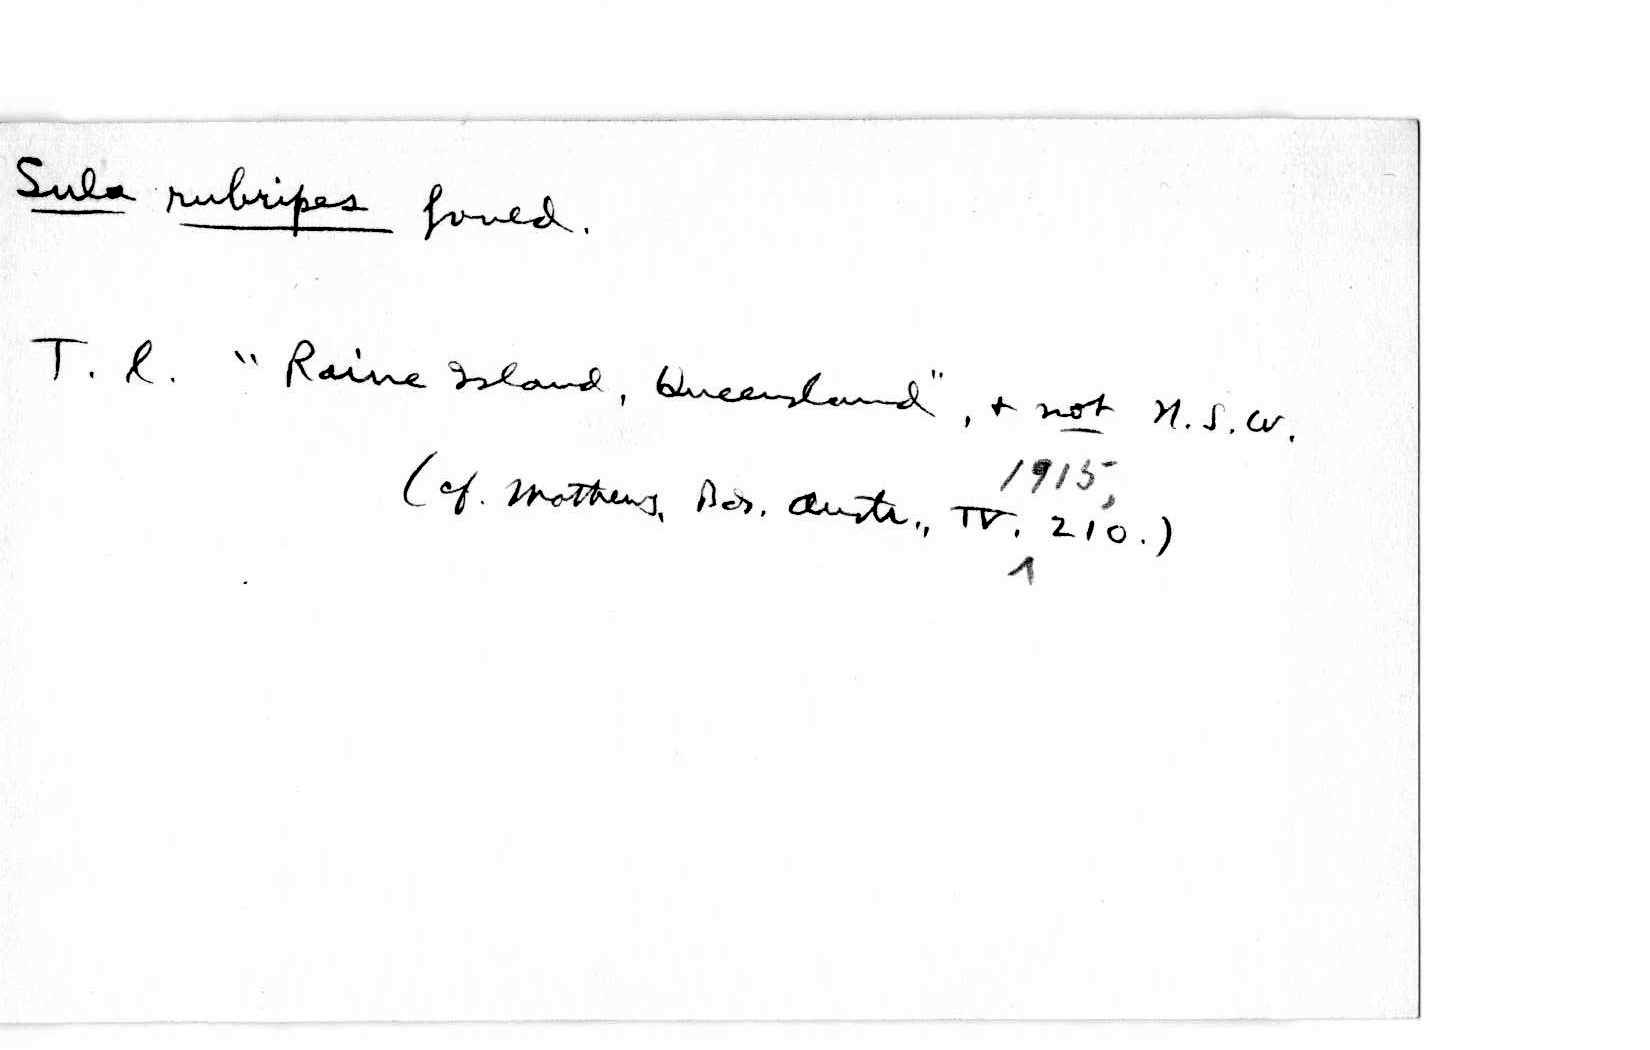 Sula rubripes Gould.
T. l. "Raine Island, Queensland", + not N.S.W.
1915,
(cf. Mathews, Bds. Austr., IV. 210.)